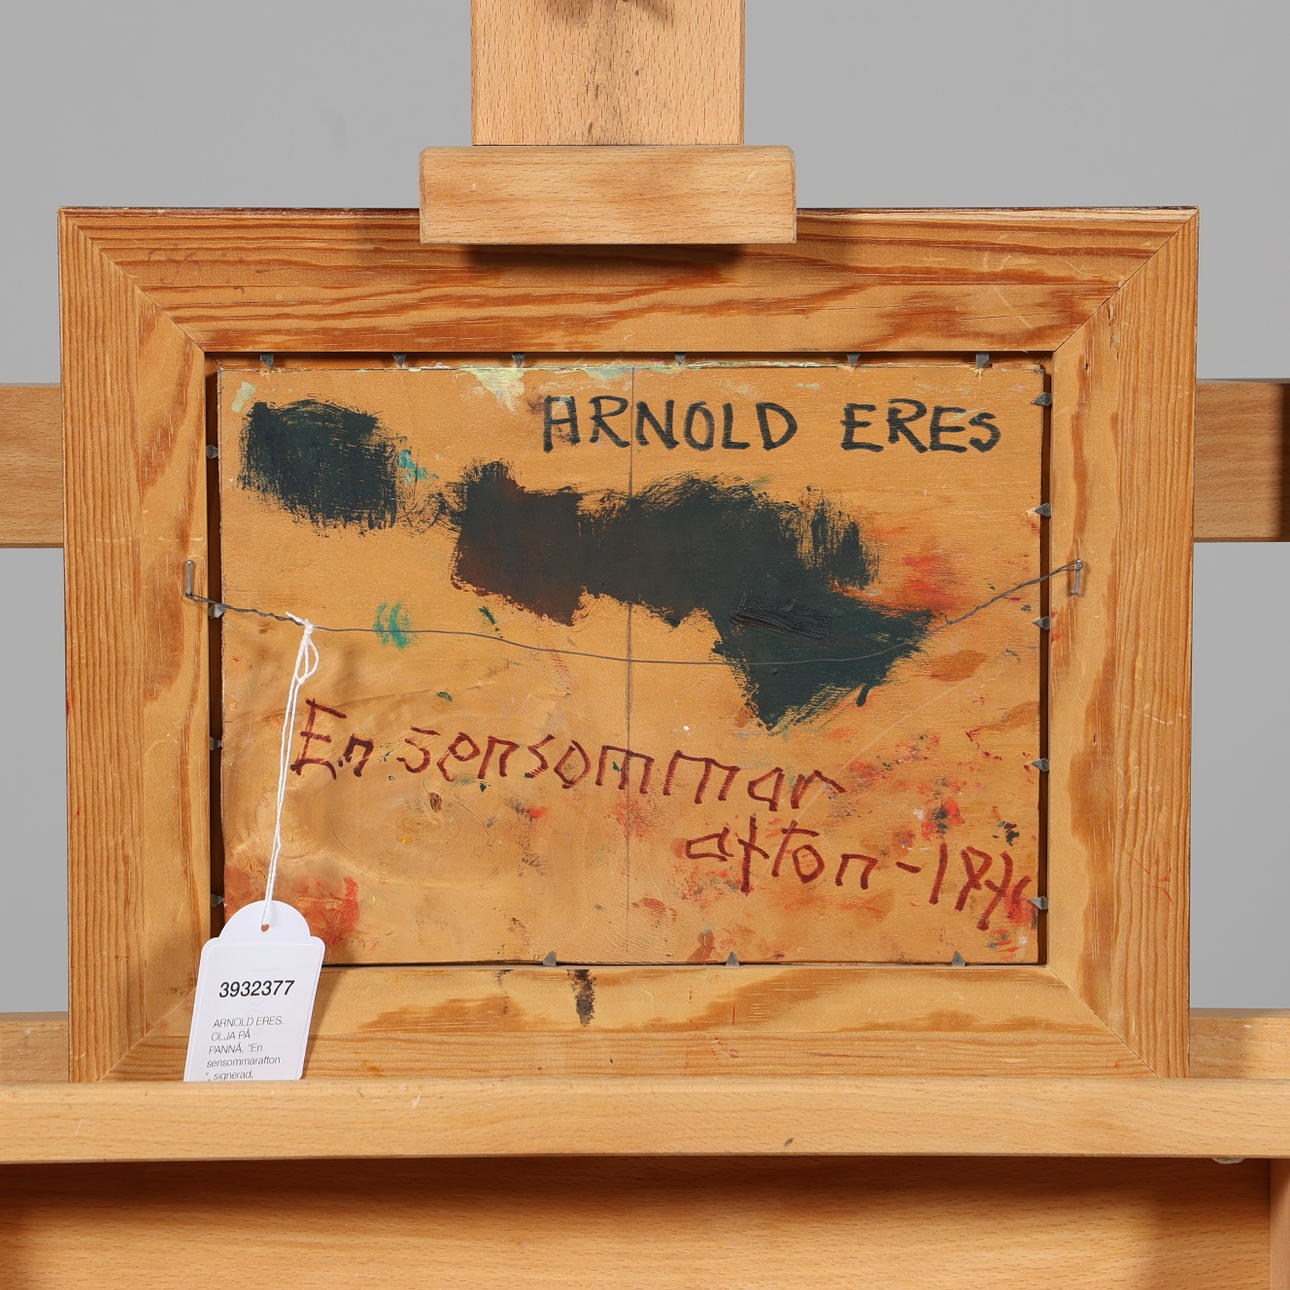 ARNOLD ERES
En sensommar
afton -1974
3932377
ARNOLD ERES.
OLJA PÅ
PANNÅ, "En
sensommarafton
", signerad,